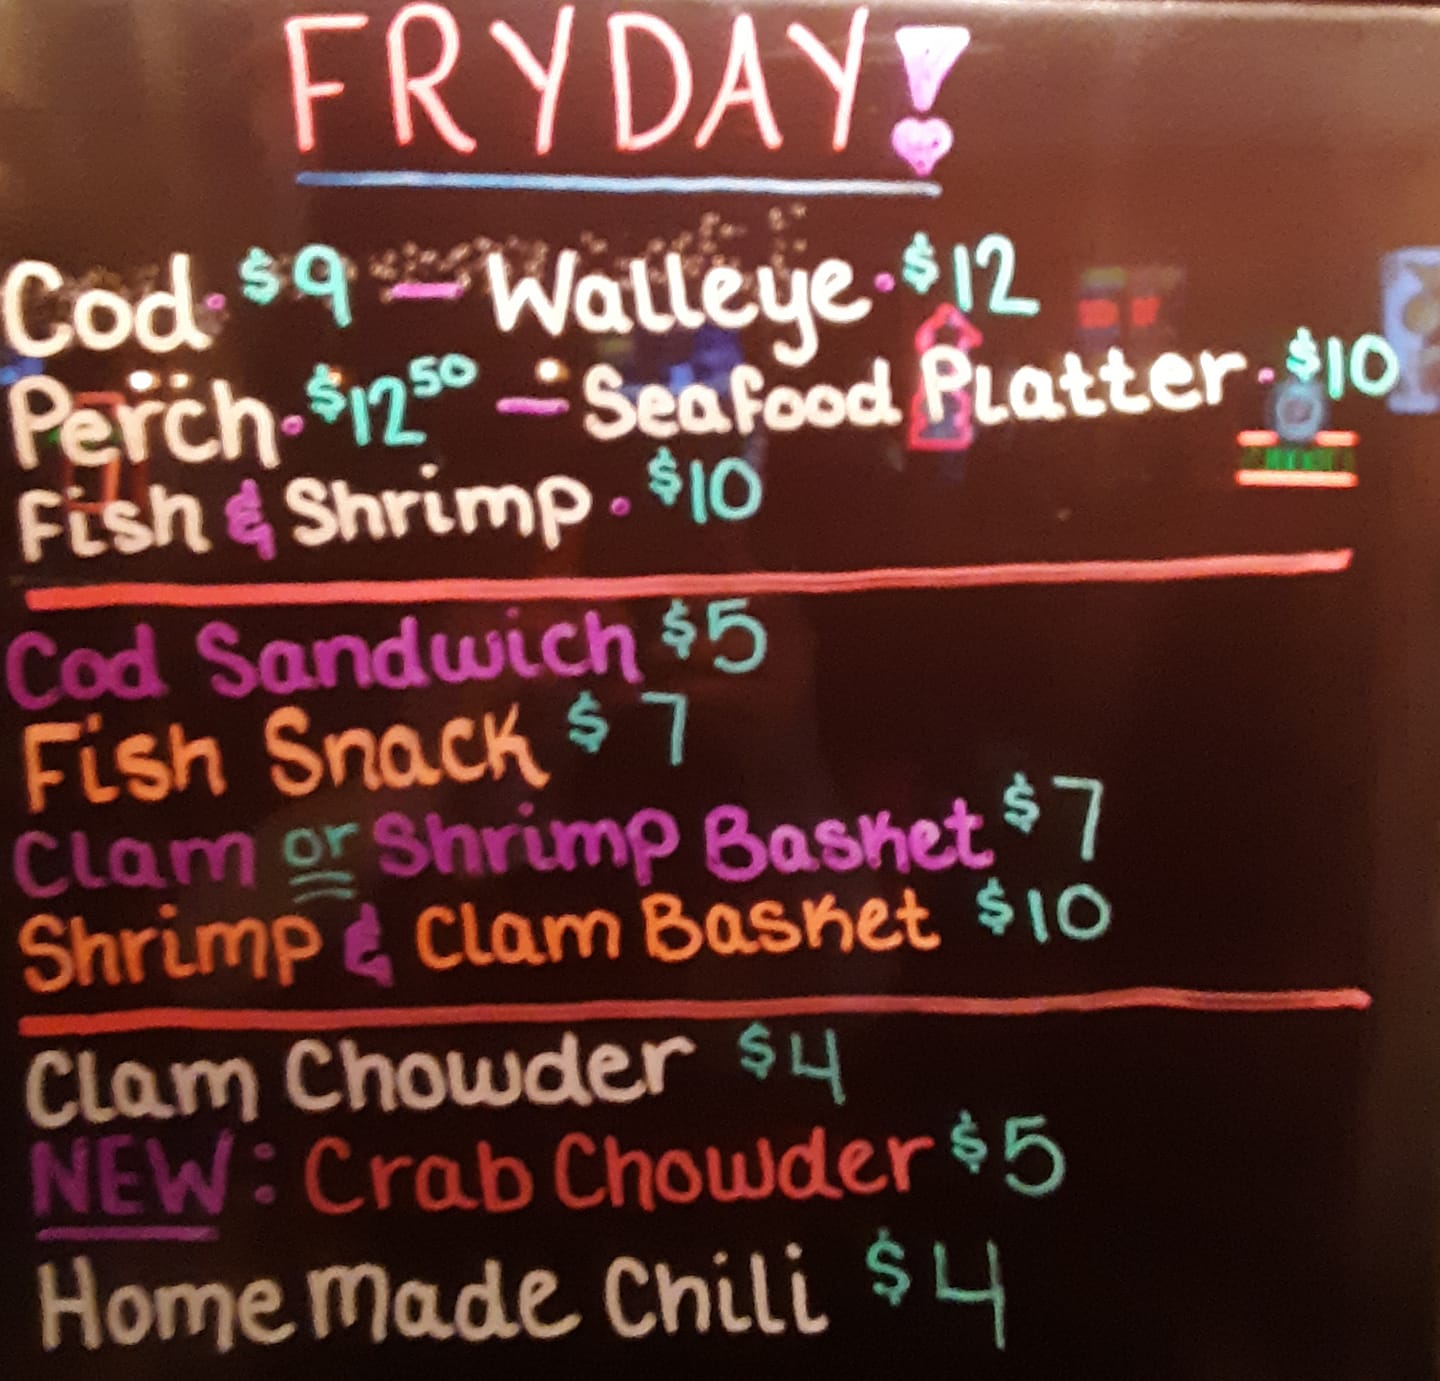 FRYDAY!
Cod · $9 — Walleye · $12
Perch · $12⁵⁰ — Seafood Platter · $10
Fish & Shrimp · $10
Cod Sandwich $5
Fish Snack $7
Clam or Shrimp Basket $7
Shrimp & Clam Basket $10
Clam Chowder $4
NEW: Crab Chowder $5
Homemade Chili $4